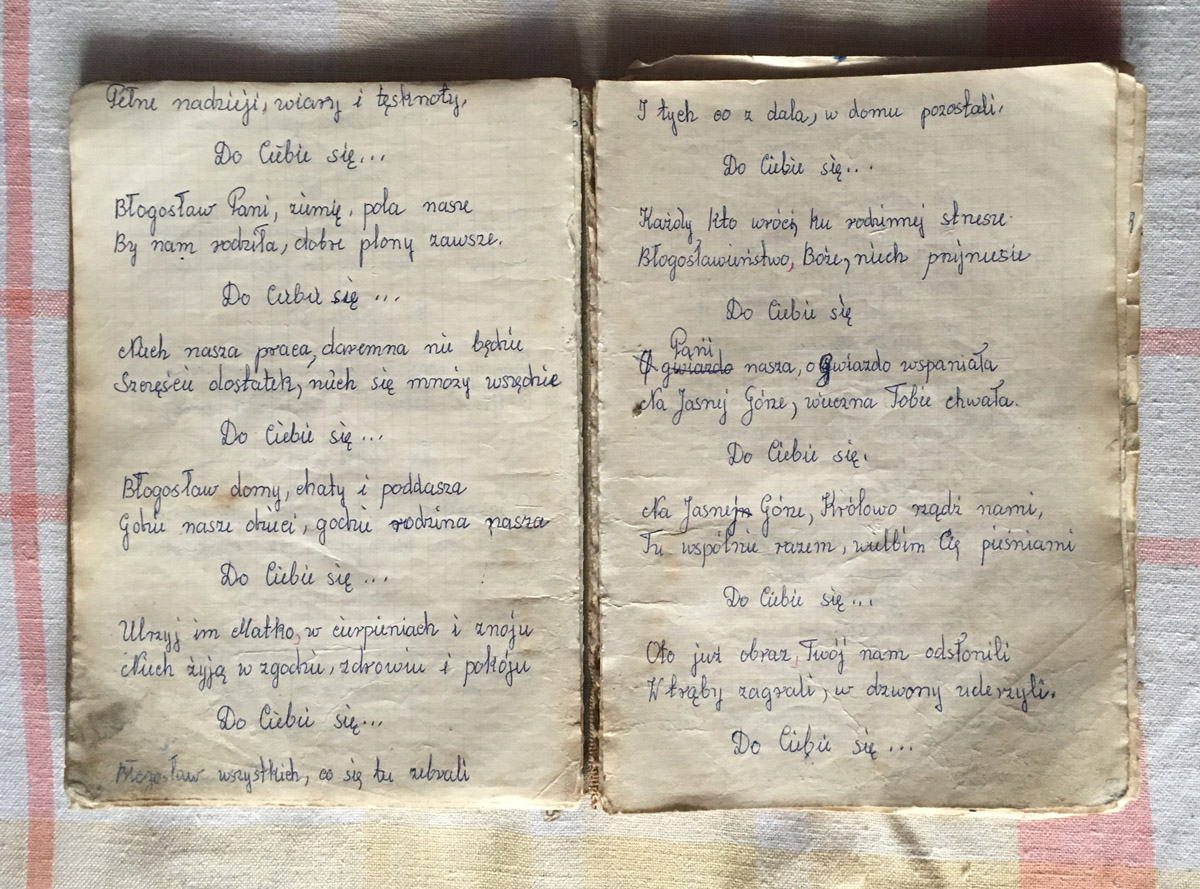 Pełne nadzieji, wiary i tęsknoty,
Do Ciebie się...
Błogosław Pani, ziemię, pola nasze
By nam rodziła, dobre plony zawsze.
Do Ciebie się...
Niech nasza praca, daremna nie będzie
Szczęście dostatek, niech się mnoży wszędzie
Do Ciebie się...
Błogosław domy, chaty i poddasza
Gdzie nasze dzieci, gdzie rodzina nasza
Do Ciebie się...
Ulżyj im Matko, w cierpieniach i znoju
Niech żyją w zgodzie, zdrowiu i pokoju
Do Ciebie się...
Błogosław wszystkich, co się tu zebrali
I tych co z dala, w domu pozostali.
Do Ciebie się...
Każdy kto wróci, ku rodzinnej strzesze
Błogosławieństwo, Boże, niech przyjniesie
Do Ciebie się
Pani
O gwiazdo nasza, o gwiazdo wspaniała
Na Jasnej Górze, wieczna Tobie chwała.
Do Ciebie się.
Na Jasnej Górze, Królowo rządź nami,
Tu wspólnie razem, wielbim Cię pieśniami
Do Ciebie się...
Oto już obraz, Twój nam odsłonili
W trąby zagrali, w dzwony uderzyli.
Do Ciebie się...